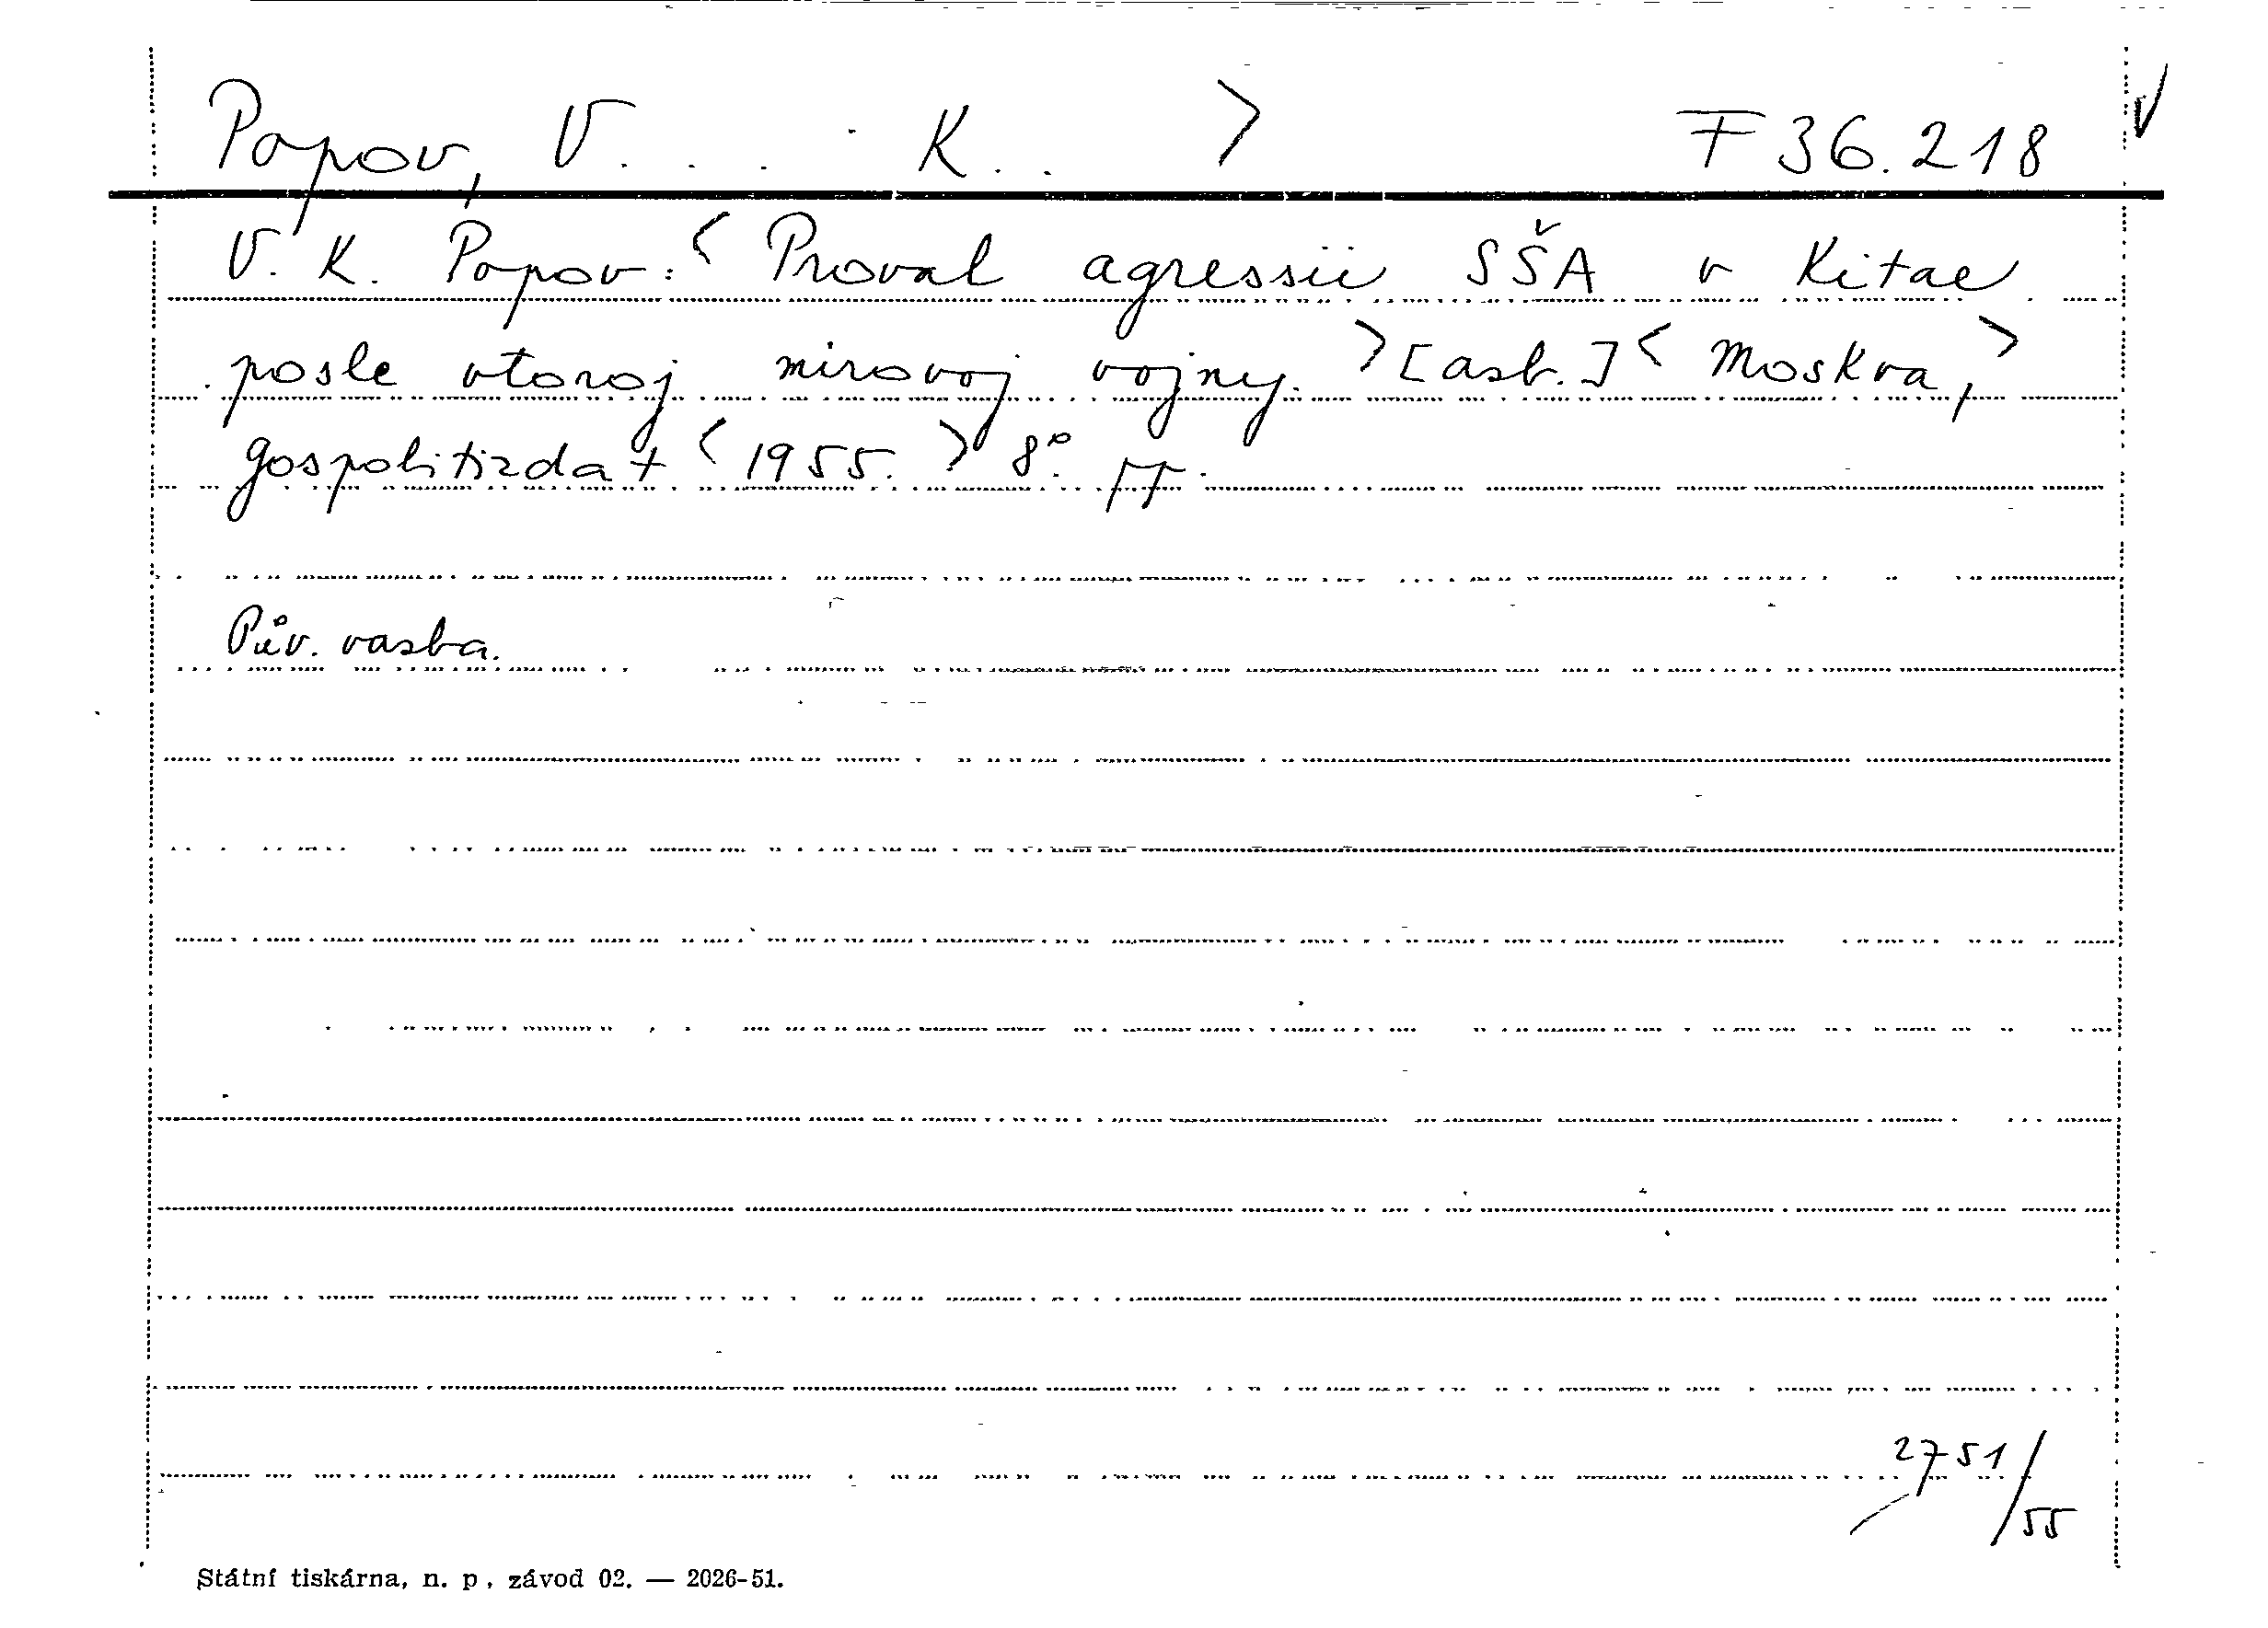 Popov, V. . . K. . > F 36.218 V
V. K. Popov: < Proval agressii SŠA v Kitae
posle vtoroj mirovoj vojny. > [azb.] < Moskva, >
gospolitizdat < 1955. > 8°.
Pův. vazba.
2751/55
Státní tiskárna, n. p., závod 02. — 2026-51.